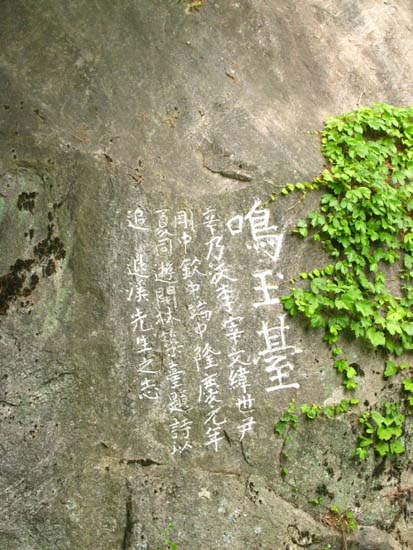 鳴玉臺
辛乃沃李宰文緯世尹
剛中欽中端中隆慶元年
夏同遊開林築臺題詩以
追 退溪先生之志